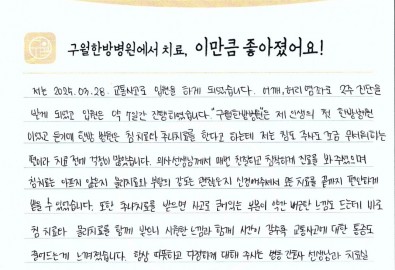 구월한방병원에서 치료, 이만큼 좋아졌어요!
저는 2025.07.28. 교통사고로 입원을 하게 되었습니다. 어깨, 허리 염좌로 2주 진단을
받게 되었고 입원은 약 7일간 진행하였습니다. "구월한방병원"는 제 인생의 첫 한방병원
이었고 듣기에 한방 병원은 침 치료다 추나치료를 한다고 하는데 저는 침도 주사도 조금 무서워하는
편이라 치료 전에 걱정이 많았습니다. 의사선생님께서 매번 친절하고 침착하게 진료를 봐주셨으며
침치료는 아프지 않은지 물리치료와 부항의 강도는 괜찮은지 신경써주셔서 모든 치료를 끝까지 편안하게
받을 수 있었습니다. 또한 추나치료를 받으면 사고로 굳어있는 부분이 약간 뻐근한 느낌도 드는데 바로
침 치료다 물리치료를 함께 받으니 시원한 느낌과 함께 시간이 갈수록 교통사고에 대한 통증도
줄어드는게 느껴졌습니다. 항상 따뜻하고 다정하게 대해 주시는 병동 간호사 선생님과 치료실